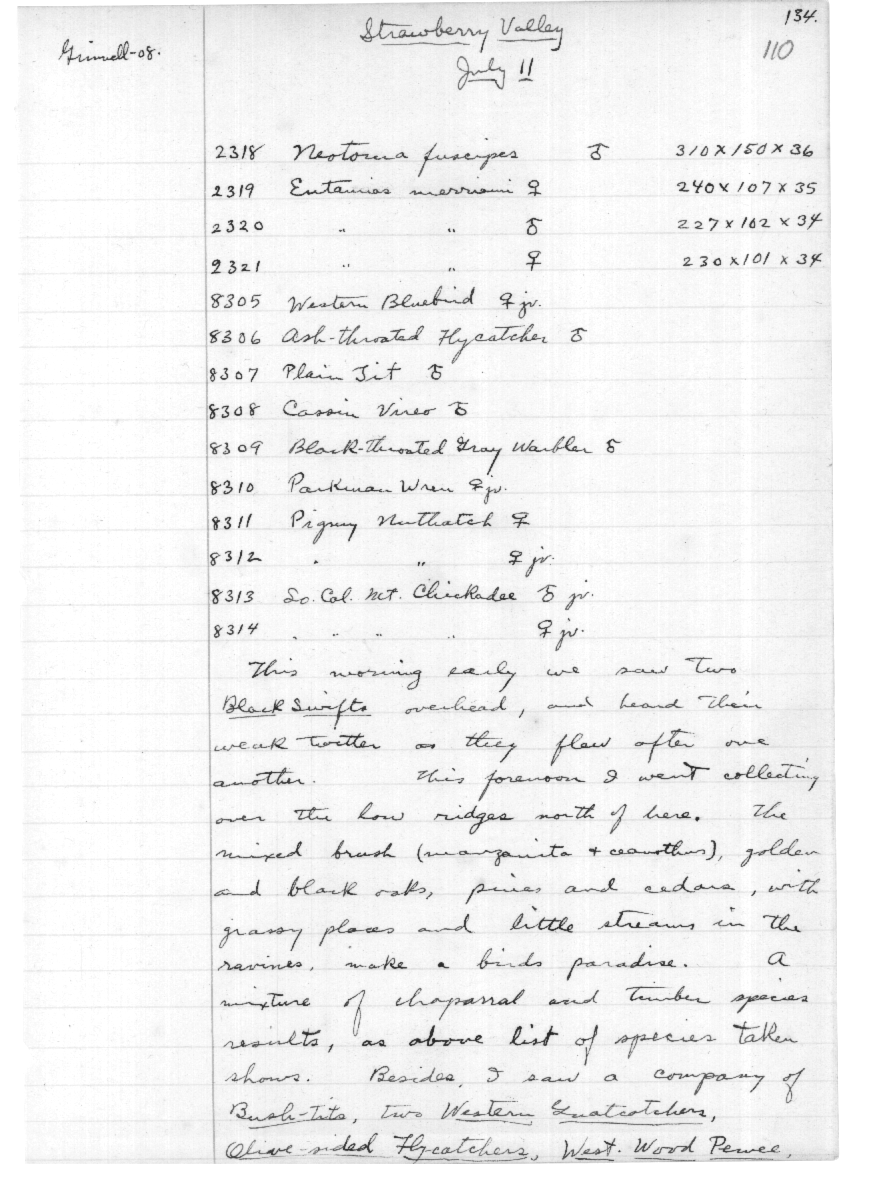 134.
Grinnell-08.
Strawberry Valley
110
July 11
2318 Neotoma fuscipes ♂ 310 x 150 x 36
2319 Eutamias merriami ♀ 240 x 107 x 35
2320 " " ♂ 227 x 102 x 34
2321 " " ♀ 230 x 101 x 34
8305 Western Bluebird ♀ jv.
8306 Ash-throated Flycatcher ♂
8307 Plain Tit ♂
8308 Cassin Vireo ♂
8309 Black-throated Gray Warbler ♂
8310 Parkman Wren ♀ jv.
8311 Pigmy Nuthatch ♀
8312 " " ♀ jv.
8313 So. Cal. Mt. Chickadee ♂ jv.
8314 " " " " ♀ jv.
This morning early we saw two
Black Swifts overhead, and heard their
weak twitter as they flew after one
another. This forenoon I went collecting
over the low ridges north of here. The
mixed brush (manzanita + ceanothus), golden
and black oaks, pines and cedars, with
grassy places and little streams in the
ravines, make a birds paradise. A
mixture of chaparral and timber species
results, as above list of species taken
shows. Besides, I saw a company of
Bush-tits, two Western Gnatcatchers,
Olive-sided Flycatchers, West. Wood Pewee,